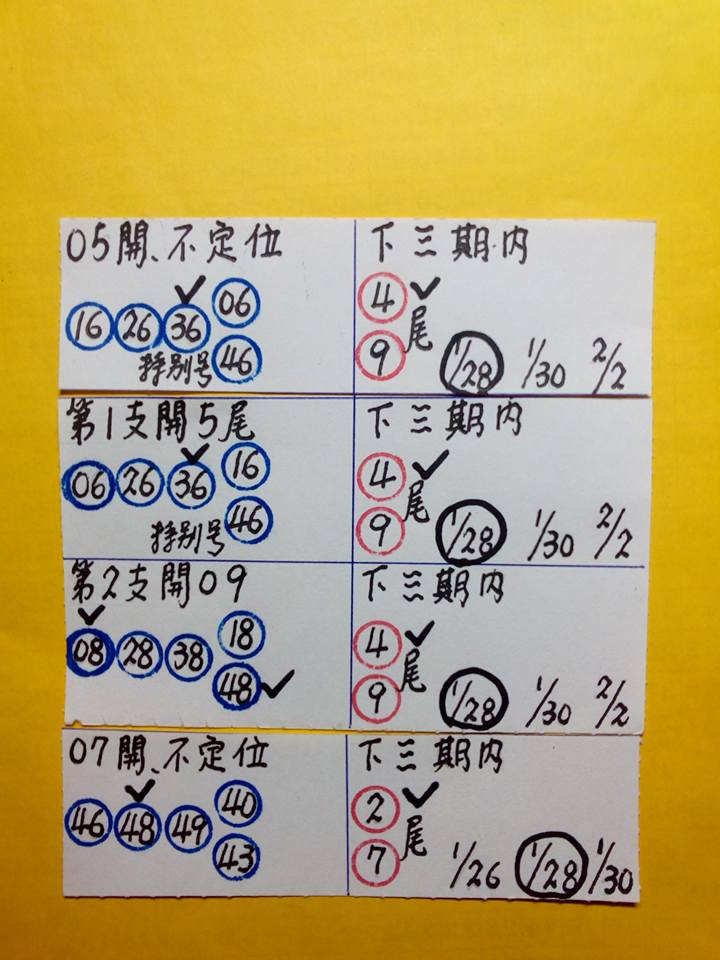 05開、不定位
✓
06
16 26 36
特別号 46
下三期內
4 ✓
尾
9 1/28 1/30 2/2
第1支開5尾
✓
16
06 26 36
特別号 46
下三期內
4 ✓
尾
9 1/28 1/30 2/2
第2支開09
✓
18
08 28 38
48 ✓
下三期內
4 ✓
尾
9 1/28 1/30 2/2
07開、不定位
✓
40
46 48 49
43
下三期內
2 ✓
尾
7 1/26 1/28 1/30